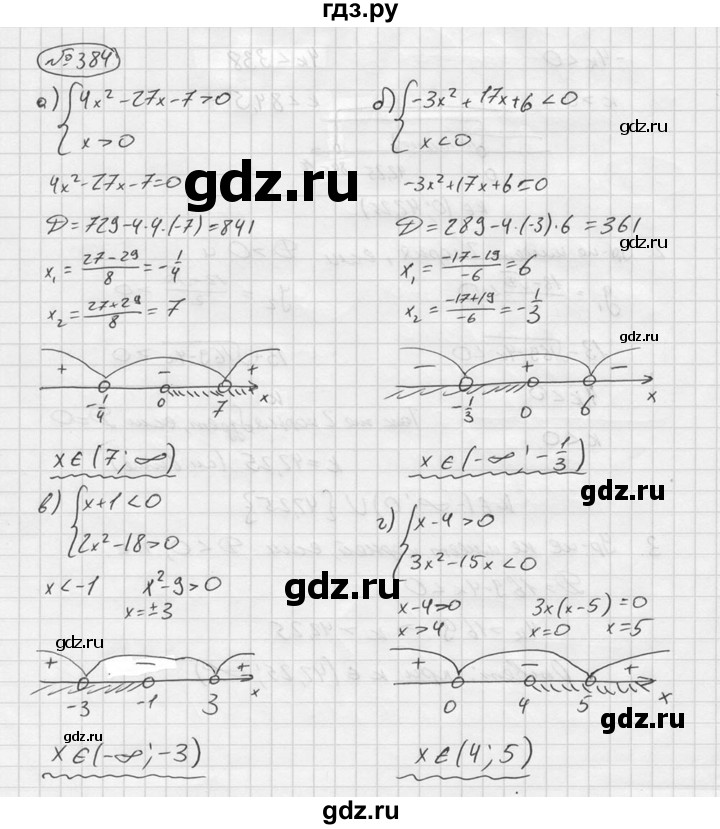 гдз.ру
№384
а) { 4x² - 27x - 7 > 0
x > 0
4x² - 27x - 7 = 0
D = 729 - 4·4·(-7) = 841
x₁ = (27-29)/8 = -1/4
x₂ = (27+29)/8 = 7
+ - +
-1/4 0 7 x
x ∈ (7; ∞)
б) { -3x² + 17x + 6 < 0
x < 0
-3x² + 17x + 6 = 0
D = 289 - 4·(-3)·6 = 361
x₁ = (-17-19)/-6 = 6
x₂ = (-17+19)/-6 = -1/3
- + -
-1/3 0 6 x
x ∈ (-∞; -1/3)
в) { x + 1 < 0
2x² - 18 > 0
x < -1 x² - 9 > 0
x = ±3
+ - +
-3 -1 3 x
x ∈ (-∞; -3)
г) { x - 4 > 0
3x² - 15x < 0
x - 4 > 0 3x(x - 5) = 0
x > 4 x = 0 x = 5
+ - +
0 4 5 x
x ∈ (4; 5)
gdz.ru
gdz.ru
gdz.ru
gdz.ru
gdz.ru
gdz.ru
gdz.ru
gdz.ru
gdz.ru
gdz.ru